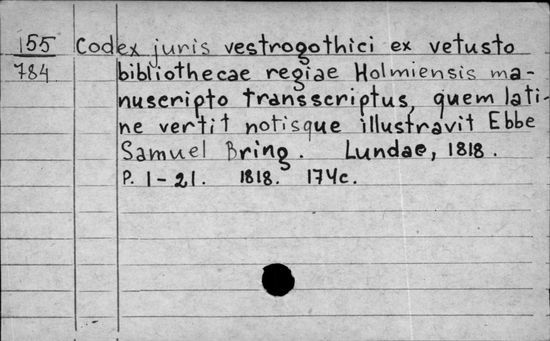 155 Codex juris vestrogothici ex vetusto
784 bibliothecae regiae Holmiensis ma-
nuscripto transscriptus, quem lati-
ne vertit notisque illustravit Ebbe
Samuel Bring. Lundae, 1818.
P. 1-21. 1818. 174c.